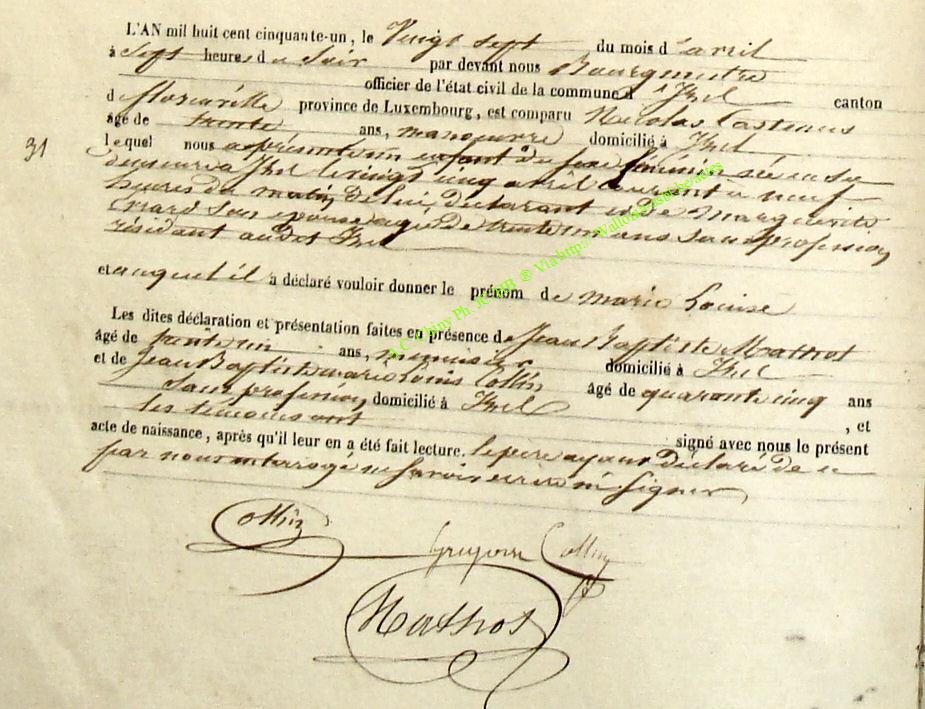 L'AN mil huit cent cinquante-un, le Vingt sept du mois d'avril
à Sept heures du Soir par devant nous Bourgmestre
officier de l'état civil de la commune d'Izel canton
de florenville province de Luxembourg, est comparu Nicolas
31
âgé de trente ans, manoeuvre domicilié à Izel
lequel nous a présenté un enfant du sexe féminin née en sa
demeure a Izel le vingt cinq avril courant a neuf
heures du matin, de lui, déclarant et de marguerite
son épouse agée de trente un ans sans profession
résidant audit Izel
et auquel il a déclaré vouloir donner le prénom de marie Louise
Les dites déclaration et présentation faites en présence de Jean Baptiste Mathot
âgé de trente un ans, menuisier domicilié à Izel
et de Jean Baptiste marie Louis Collin âgé de quarante cinq ans
sans profession domicilié à Izel , et
les témoins ont signé avec nous le présent
acte de naissance, après qu'il leur en a été fait lecture. le père ayant déclaré de ce
par nous interrogé ne savoir écrire ni signer
Collin
Grégoire Collin
Mathot
A.C. Chiny Ph. ® Via http://